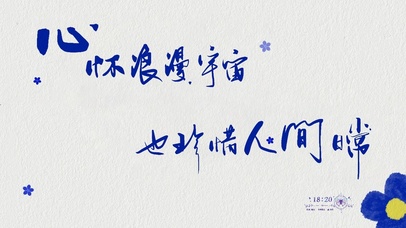 心怀浪漫宇宙
也珍惜人間日常
18:20